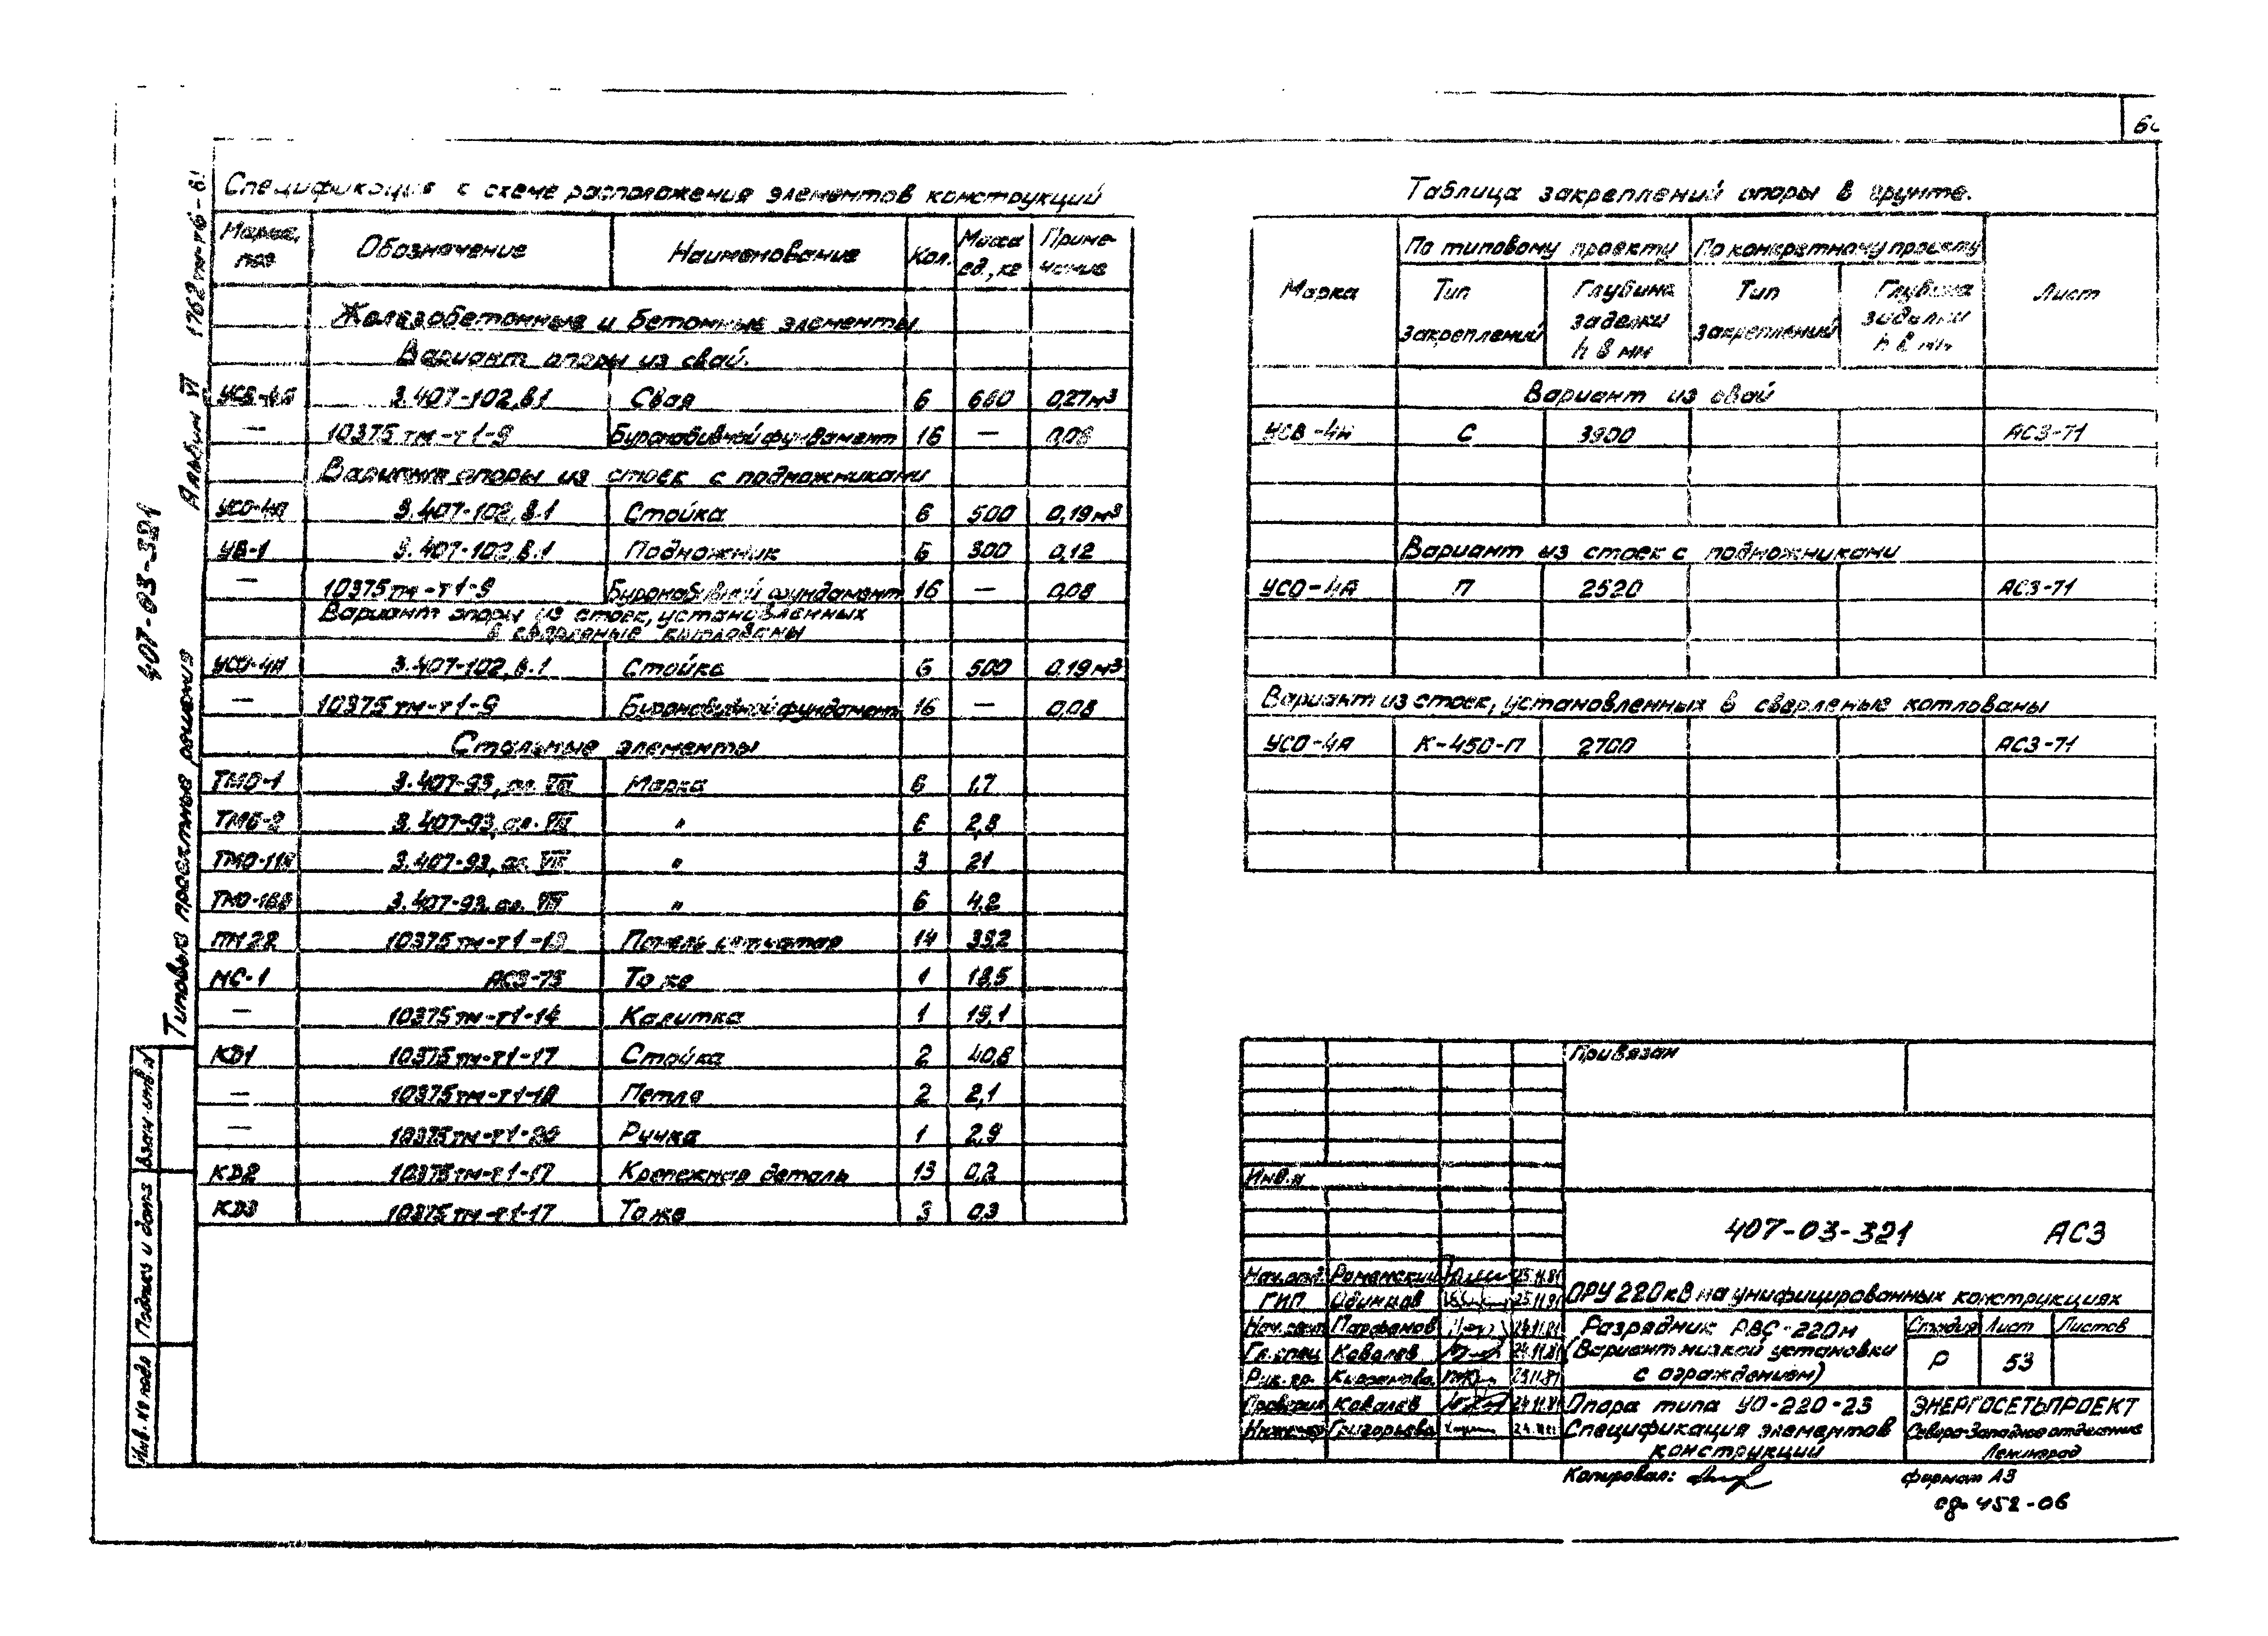 Спецификация к схеме расположения элементов конструкций
Марка, поз Обозначение Наименование Кол. Масса ед., кг Приме-чание
Железобетонные и бетонные элементы
Вариант опоры из свай.
3.407-102, в.1 Свая 6 660 0,27 м³
— 10375 тм-т1-9 Буронабивной фундамент 16 — 0,08
Вариант опоры из стоек с подножниками
УСО-4А 3.407-102, в.1 Стойка 6 500 0,19 м³
3.407-102, в.1 Подножник 6 300 0,12
— 10375 тм-т1-9 Буронабивной фундамент 16 — 0,08
Вариант опоры из стоек, установленных
в сверленые котлованы
УСО-4А 3.407-102, в.1 Стойка 6 500 0,19 м³
— 10375 тм-т1-9 Буронабивной фундамент 16 — 0,08
Стальные элементы
ТМО-1 3.407-93, ал. VIII Марка 6 1,7
3.407-93, ал. VIII " 6 2,8
3.407-93, ал. VIII " 3 21
3.407-93, ал. VIII " 6 4,2
10375 тм-т1- Панель сетчатая 14 39,2
МС-1 АС3-75 То же 1 18,5
— 10375 тм-т1-14 Калитка 1 19,1
КД1 10375 тм-т1-17 Стойка 2 40,6
— 10375 тм-т1-18 Петля 2 2,1
— 10375 тм-т1-20 Ручка 1 2,9
КД2 10375 тм-т1-17 Крепежная деталь 13 0,2
КД3 10375 тм-т1-17 То же 3 0,3
Таблица закреплений опоры в грунте.
Марка По типовому проекту По конкретному проекту Лист
Тип закреплений Глубина заделки h в мм Тип закреплений Глубина заделки h в мм
Вариант из свай
УСВ-4А С 3900 АС3-71
Вариант из стоек с подножниками
УСО-4А П 2520 АС3-71
Вариант из стоек, установленных в сверленые котлованы
УСО-4А К-450-П 2700 АС3-71
Привязан
Инв.н
407-03-321 АС3
Нач.отд. Роменский 25.11.81
ГИП Одинцов 25.11.81
ОРУ 220 кВ на унифицированных конструкциях
Парфенов 24.11.81
Гл.спец Ковалев 24.11.81
Рук.гр.
Проверил Ковалев 24.11.81
Инженер Григорьева 24.11.81
Разрядник РВС-220м
(Вариант низкой установки
с ограждением)
Стадия Лист Листов
Р 53
Опора типа УО-220-23
Спецификация элементов
конструкции
ЭНЕРГОСЕТЬПРОЕКТ
Северо-Западное отделение
Ленинград
Копировал:
формат А3
сф 452-06
407-03-321
Типовые проектные решения Альбом VI 1762тм-т6-
Взам.инв.н
Подпись и дата
Инв. № подл